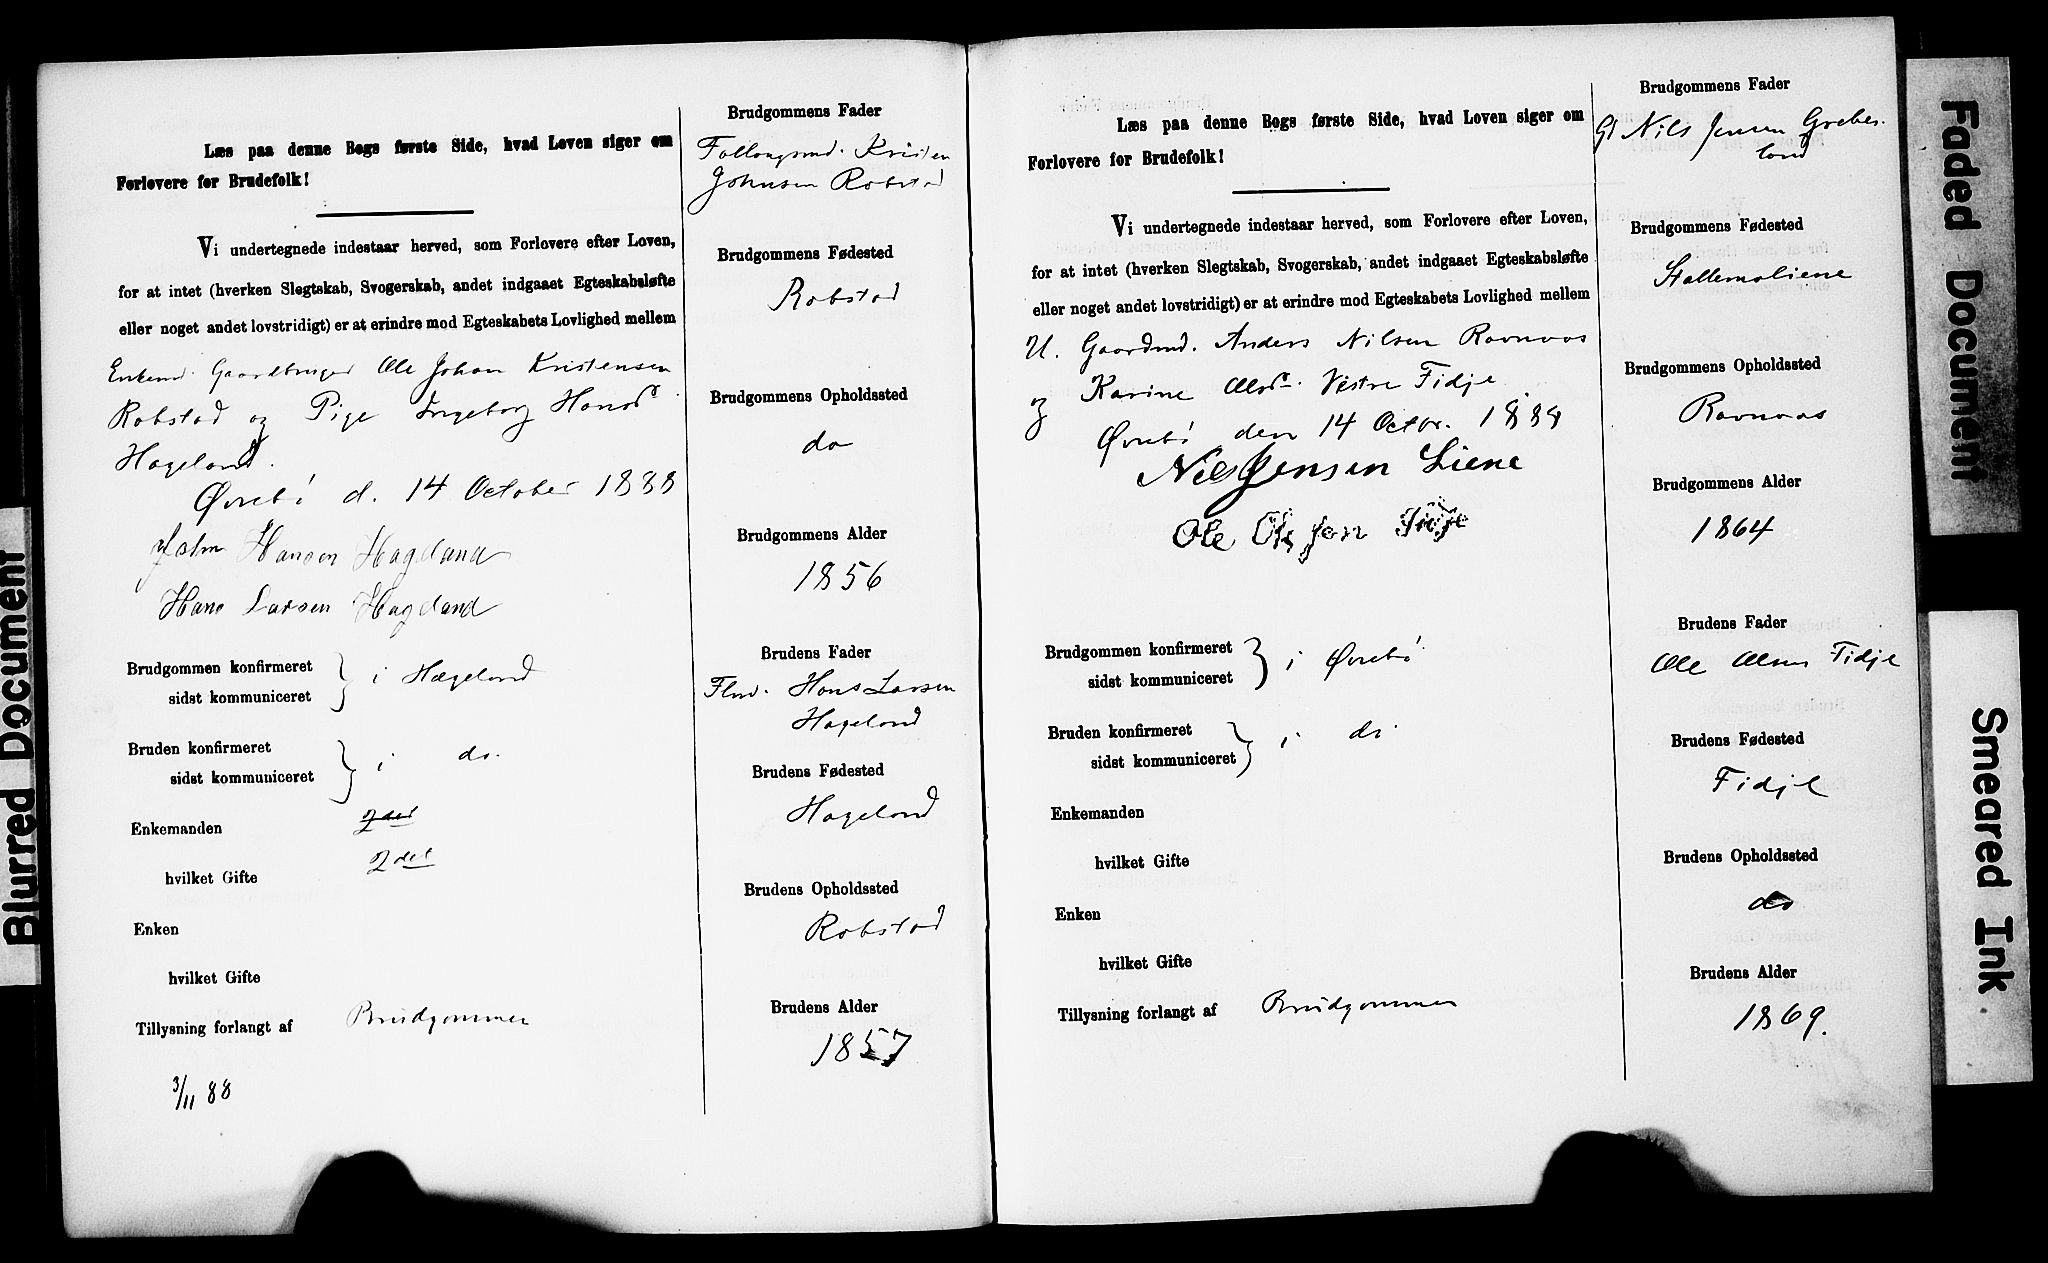 Læs paa denne Bogs første Side, hvad Loven siger om
Forlovere for Brudefolk!
Vi undertegnede indestaar herved, som Forlovere efter Loven,
for at intet (hverken Slegtskab, Svogerskab, andet indgaaet Egteskabsløfte
eller noget andet lovstridigt) er at erindre mod Egteskabets Lovlighed mellem
Enkem. Gaardbruger Ole Johan Kristensen
Robstad og Pige Ingeborg Hansd.
Hageland.
Øvrebø d. 14 October 1888
Hansen Hageland
Hans Larsen Hageland
Brudgommen konfirmeret
sidst kommuniceret } i Hægeland
Bruden konfirmeret
sidst kommuniceret } i do.
Enkemanden 2det
hvilket Gifte 2det
Enken
hvilket Gifte
Tillysning forlangt af Brudgommen
3/11 88
Brudgommens Fader
Kristen
Johnsen Robstad
Brudgommens Fødested
Robstad
Brudgommens Opholdssted
do
Brudgommens Alder
1856
Brudens Fader
Hans Larsen
Hageland
Brudens Fødested
Hageland
Brudens Opholdssted
Robstad
Brudens Alder
1857
Læs paa denne Bogs første Side, hvad Loven siger om
Forlovere for Brudefolk!
Vi undertegnede indestaar herved, som Forlovere efter Loven,
for at intet (hverken Slegtskab, Svogerskab, andet indgaaet Egteskabsløfte
eller noget andet lovstridigt) er at erindre mod Egteskabets Lovlighed mellem
U. Gaardmd. Anders Nilsen Ravnaas
og Karine Olsd. Vestre Fidje
Øvrebø den 14 Octbr. 1888
Nils Jensen Liene
Ole Olsen Fidje
Brudgommen konfirmeret
sidst kommuniceret } i Øvrebø
Bruden konfirmeret
sidst kommuniceret } i do.
Enkemanden
hvilket Gifte
Enken
hvilket Gifte
Tillysning forlangt af Brudgommen
Brudgommens Fader
Nils Jensen Grebes-
land
Brudgommens Fødested
Stallemoliene
Brudgommens Opholdssted
Ravnaas
Brudgommens Alder
1864
Brudens Fader
Ole Olsen Fidje
Brudens Fødested
Fidje
Brudens Opholdssted
do
Brudens Alder
1869.
Blurred Document
Faded Document
Smeared Ink